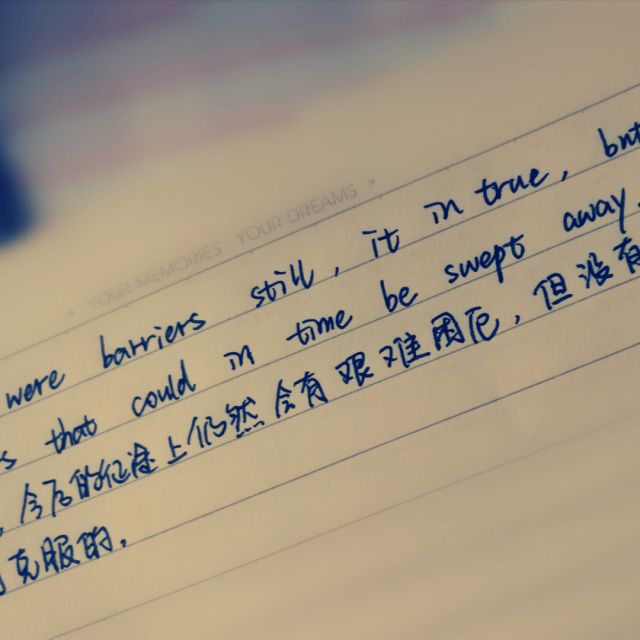 YOUR MEMORIES YOUR DREAMS
were barriers still, it in true, but
s that could in time be swept away.
,今后的征途上仍然会有艰难困厄,但没有
克服的.